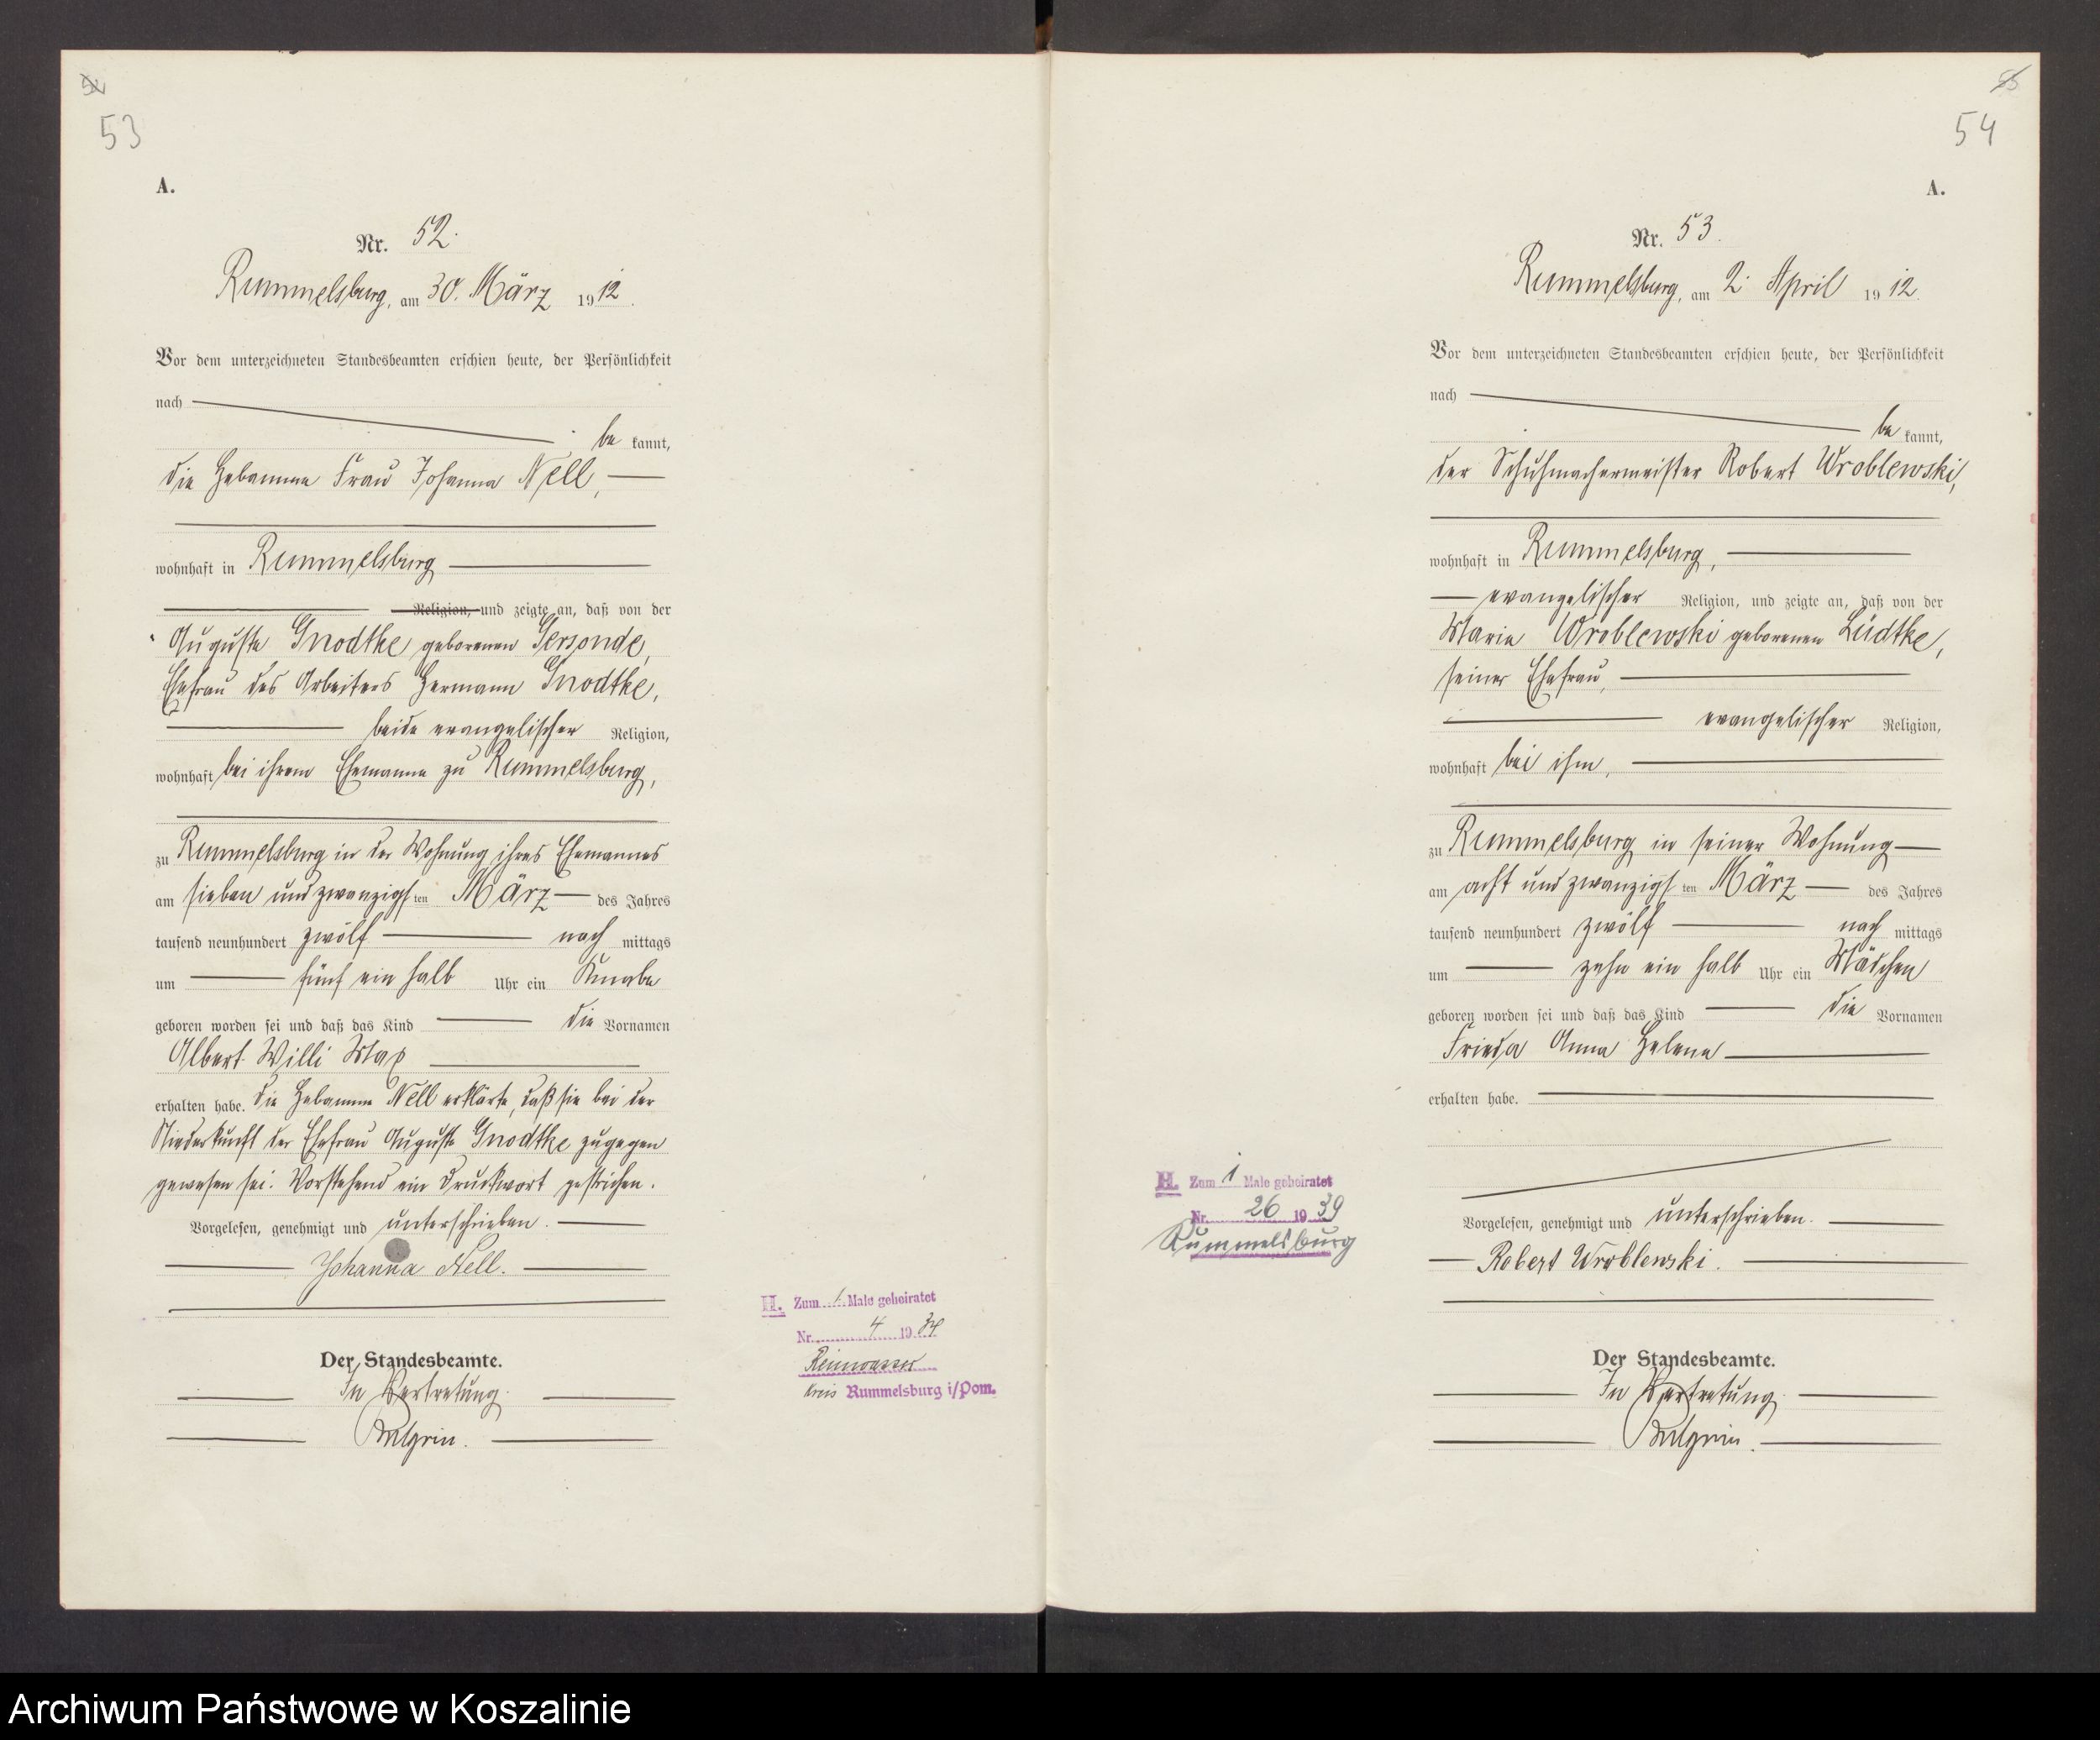 53
A.
Nr. 52.
Rummelsburg, am 30. März 1912.
Vor dem unterzeichneten Standesbeamten erschien heute, der Persönlichkeit
nach
bekannt,
die Hebamme Frau Johanna Nell,
wohnhaft in Rummelsburg
Religion, und zeigte an, daß von der
Auguste Gnodtke geborenen Gersonde,
Ehefrau des Arbeiters Hermann Gnodtke,
beide evangelischer Religion,
wohnhaft bei ihrem Ehemanne zu Rummelsburg,
zu Rummelsburg in der Wohnung ihres Ehemannes
am sieben und zwanzigsten März des Jahres
tausend neunhundert zwölf nachmittags
um fünf ein halb Uhr ein Knabe
geboren worden sei und daß das Kind die Vornamen
Albert Willi Max
erhalten habe. Die Hebamme Nell erklärte, daß sie bei der
Niederkunft der Ehefrau Auguste Gnodtke zugegen
gewesen sei. Vorstehend ein Druckwort gestrichen.
Vorgelesen, genehmigt und unterschrieben.
Johanna Nell.
Der Standesbeamte.
In Vertretung.
H. Zum 1 Male geheiratet
Nr. 4 19
Kreis Rummelsburg i/Pom.
54
A.
Nr. 53.
Rummelsburg, am 2. April 1912.
Vor dem unterzeichneten Standesbeamten erschien heute, der Persönlichkeit
nach
bekannt,
der Schuhmachermeister Robert Wroblewski,
wohnhaft in Rummelsburg,
evangelischer Religion, und zeigte an, daß von der
Marie Wroblewski geborenen Lüdtke,
seiner Ehefrau,
evangelischer Religion,
wohnhaft bei ihm,
zu Rummelsburg in seiner Wohnung
am acht und zwanzigsten März des Jahres
tausend neunhundert zwölf nachmittags
um zehn ein halb Uhr ein Mädchen
geboren worden sei und daß das Kind die Vornamen
Frieda Anna Helene
erhalten habe.
Vorgelesen, genehmigt und unterschrieben.
Robert Wroblewski.
Der Standesbeamte.
In Vertretung.
H. Zum 1 Male geheiratet
Nr. 26 1939
Rummelsburg
Archiwum Państwowe w Koszalinie